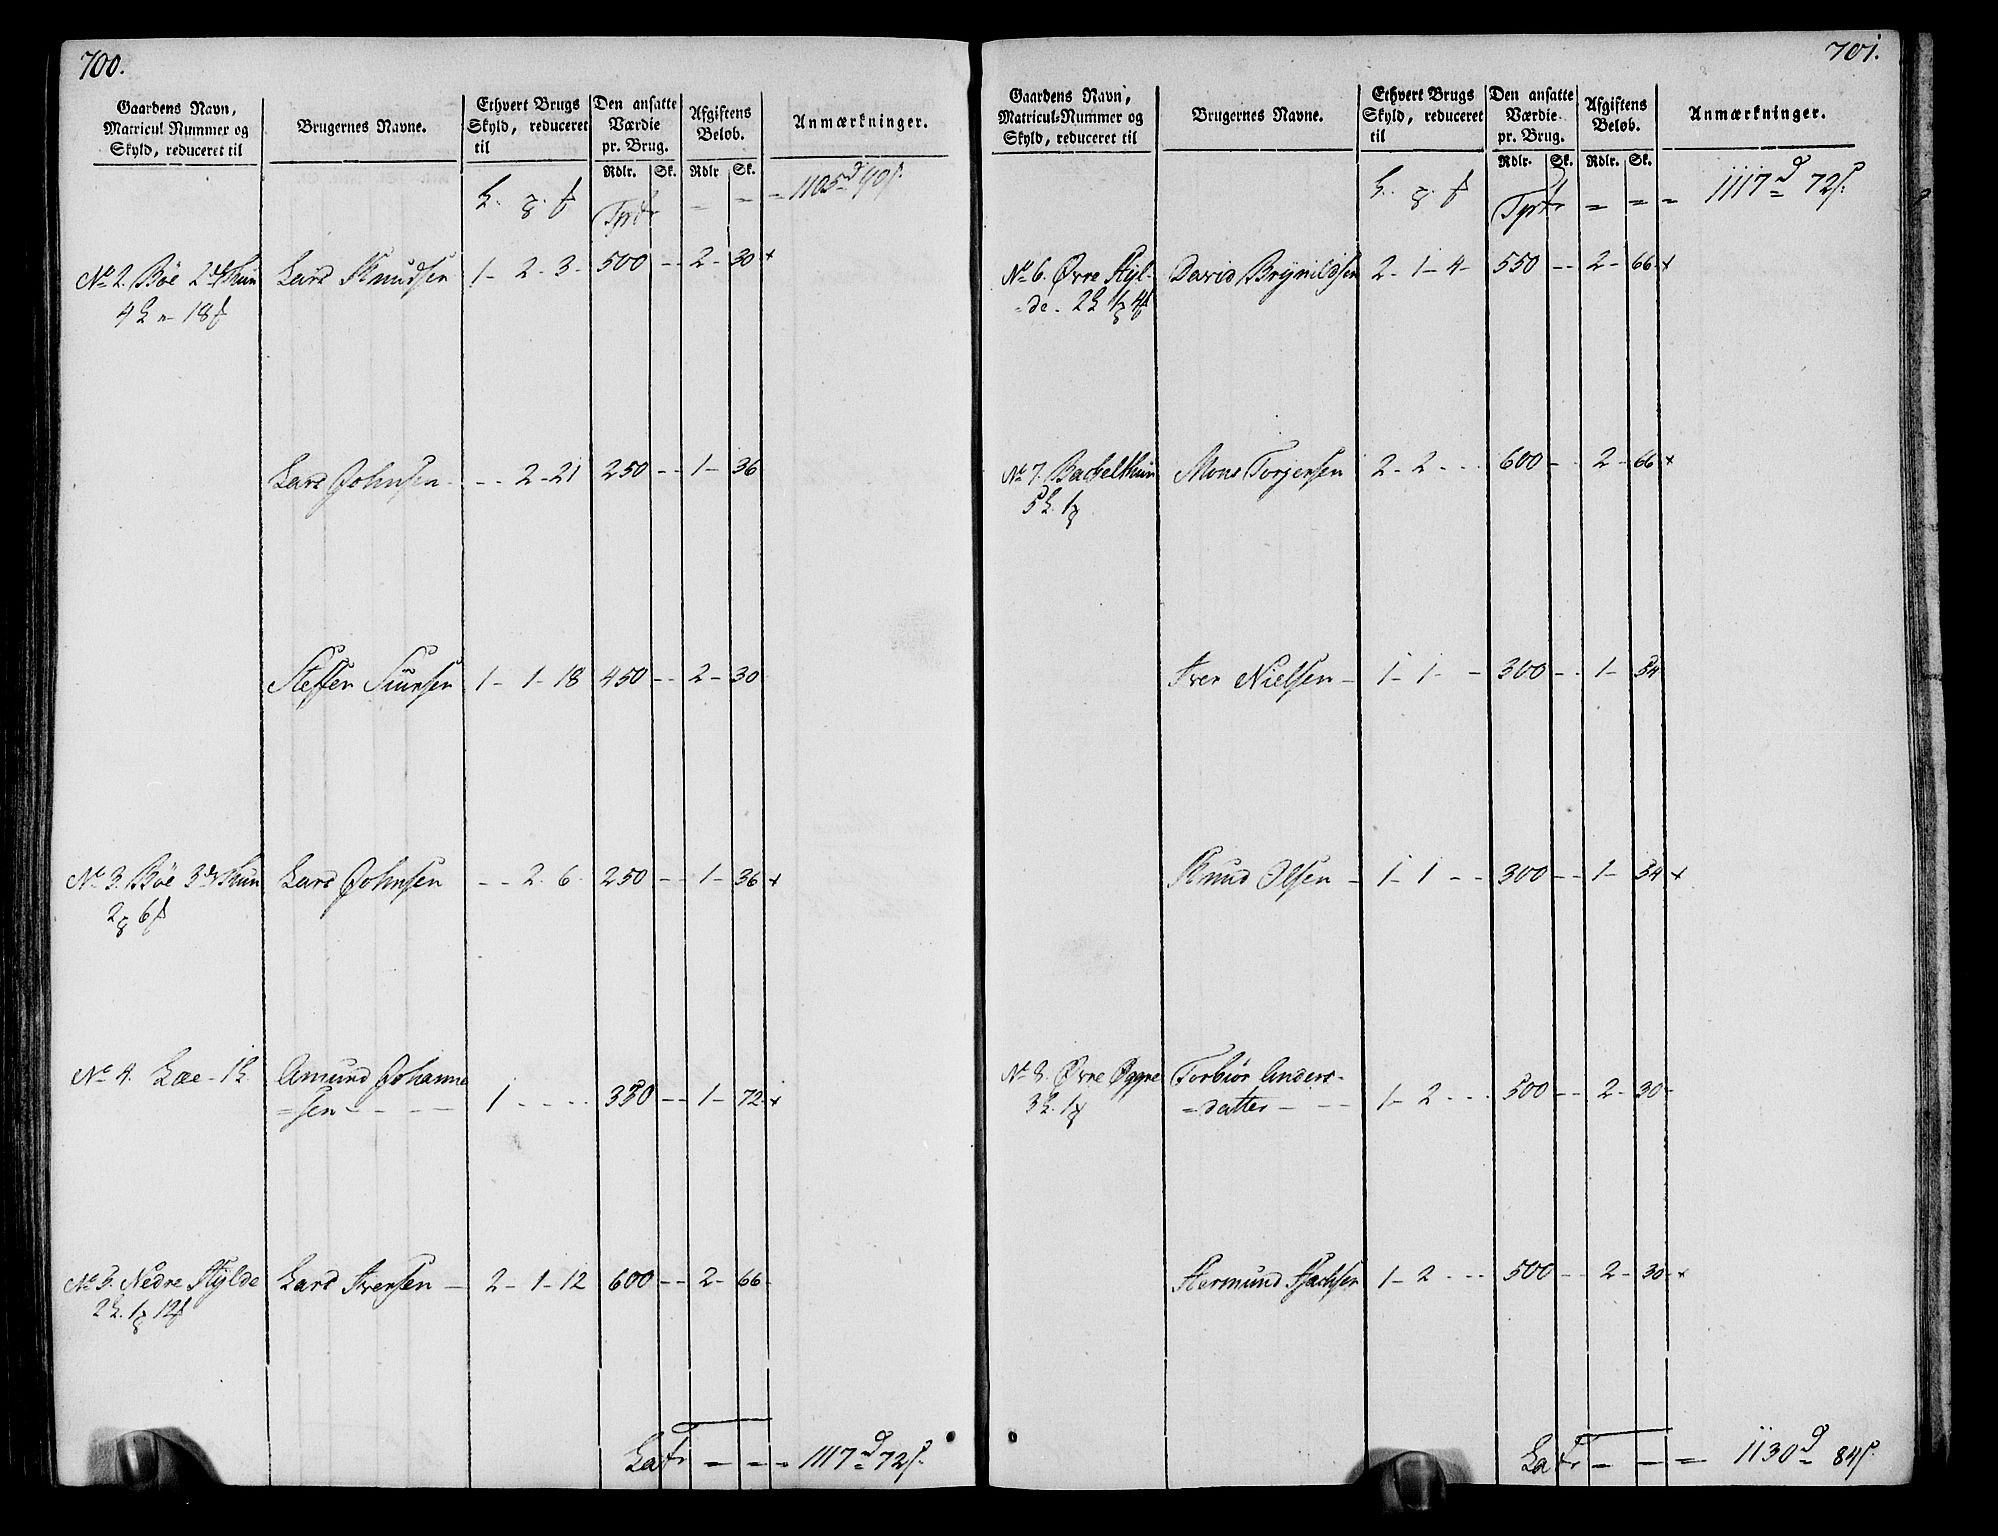 700.
Gaardens Navn,
Matricul Nummer og
Skyld, reduceret til
Brugernes Navne.
Ethvert Brugs
Skyld, reduceret
til
Den ansatte
Værdie
pr. Brug.
Afgiftens
Beløb.
Anmærkninger.
Rdlr. Sk. Rdlr Sk.
Tprt - - = 1105 d 90 s.
No 2. Böe 2de Thun Lars Knudsen 1 - 2 - 3 - 500 - - 2 - 30 +
Lars Johnsen - - - 2 - 21 250 - - 1 - 36
Steffen Siursen 1 - 1 - 18 450 - - 2 - 30
No 3. Böe 3de Thun Lars Johnsen - - 2 - 6 - 250 - - 1 - 36 +
No 4. Lae - 1 Amund Johanne
= sen - - - - 1 - - - - 350 - - 1 - 72 +
No 5. Nedre Skylde Lars Iversen - 2 - 1 - 12 600 - - 2 - 66 -
Latr - - - 1117 d 72 s.
701.
Gaardens Navn,
Matricul-Nummer og
Skyld, reduceret til
Brugernes Navne.
Ethvert Brugs
Skyld, reduceret
til
Den ansatte
Værdie
pr. Brug.
Afgiftens
Beløb.
Anmærkninger.
Rdlr. Sk. Rdlr. Sk.
Tprt = = = 1117 d 72 s.
No 6. Øvre Skyl- David Brynildsen 2 - 1 - 4 - 550 - - 2 - 66 +
= de.
No 7. Mons Torjersen 2 - 2 - - - 600 - - 2 - 66 +
Iver Nielsen - 1 - 1 - - 300 - - 1 - 54
Knud Olsen - 1 - 1 - - 300 - - 1 - 54 +
No 8. Øvre Torbiör Anders -
= datter - - - 1 - 2 - - - 500 - - 2 - 30 -
Hermund 1 - 2 - - - 500 - - 2 - 30 +
Latr - - = 1130 d 84 s.